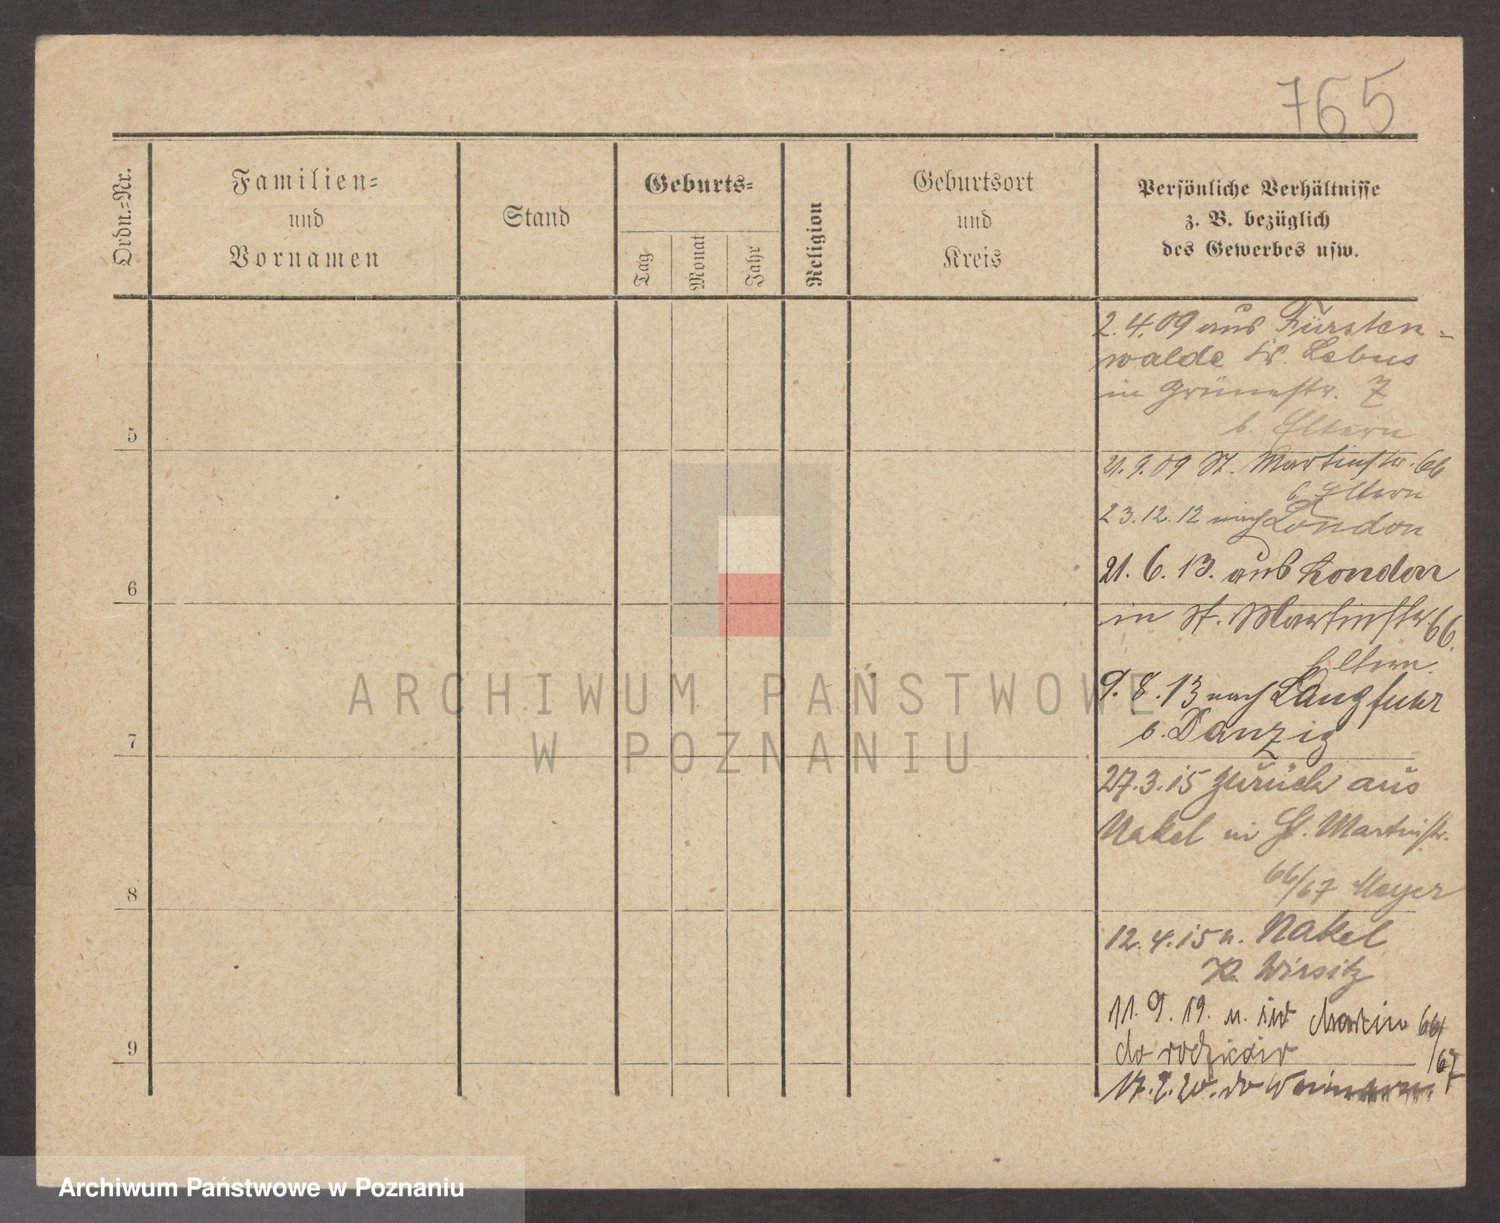 765
Ordn.-Nr.
Familien-
und
Vornamen
Stand
Geburts-
Tag
Monat
Jahr
Religion
Geburtsort
und
Kreis
Persönliche Verhältnisse
z. B. bezüglich
des Gewerbes usw.
2.4.09 aus Fürsten-
walde Kr. Lebus
in Grünestr. 7
b. Eltern
5
21.9.09 St. Martinstr. 66
b. Eltern
23.12.12 nach London
21. 6. 13. aus London
6
in St. Martinstr 66.
Eltern.
9. 8. 13 nach Langfuhr
b. Danzig
7
27.3.15 zurück aus
Nakel in St. Martinstr.
66/67 Meyer
8
12.4.15 n. Nakel
Kr. Wirsitz
11. 9. 19. Martin 66/
67
do rodziców
9
17.2.20. do
ARCHIWUM PAŃSTWOWE
W POZNANIU
Archiwum Państwowe w Poznaniu